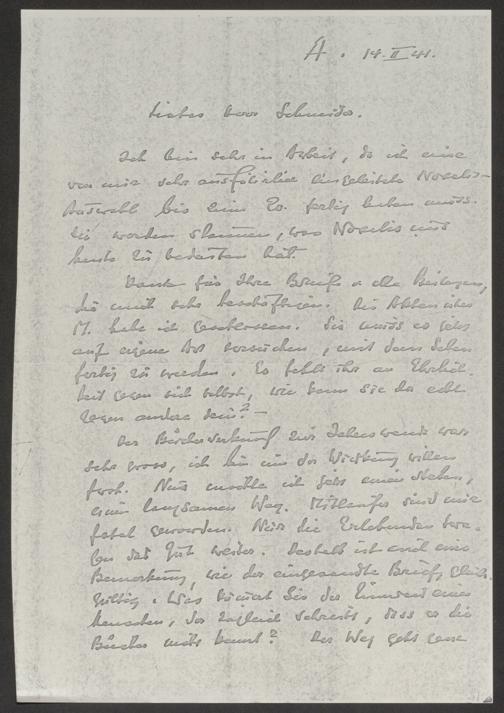 A. 14.II.41.
Lieber Herr Schneider.
Ich bin sehr in Arbeit, da ich eine
von mir sehr ausführlich eingeleitete Novalis-
Auswahl bis zum 20. fertig haben muss.
Sie werden staunen, was Novalis uns
heute zu bedeuten hat.
Dank für Ihre Briefe u alle Beilagen,
die mich sehr beschäftigen. Die Akten über
M. habe ich geschlossen. Sie muss es jetzt
auf eigene Art versuchen, mit dem Leben
fertig zu werden. Es fehlt ihr an Ehrlich-
keit gegen sich selbst, wie kann sie da echt
gegen andere sein? —
Der Bücherverkauf zur Jahreswende war
sehr gross, ich bin um der Wirkung willen
froh. Nun mache ich jetzt einen
einen langsamen Weg. Mitläufer sind mir
fatal geworden. Nur die Erlebenden
das Gut weiter. Deshalb ist mir eine
Bemerkung, wie der eingesandte Brief, gleich-
gültig. Was kümmert Sie der Einwand eines
Menschen, der zugleich schreibt, dass er die
Bücher nicht kennt? Der Weg geht ganz